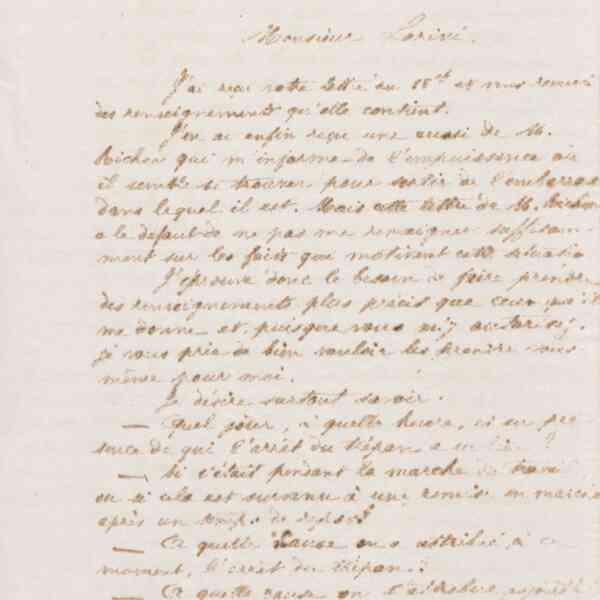 Monsieur
J'ai reçu votre lettre du 18 ct et vous remercie
des renseignements qu'elle contient.
J'en ai enfin reçu une aussi de M.
Richon qui m'informe de l'impuissance où
il semble se trouver pour sortir de l'embarras
dans lequel il est. Mais cette lettre de M. Richon
a le défaut de ne pas me renseigner suffisam-
ment sur les faits qui motivent cette situation
J'éprouve donc le besoin de faire prendre
des renseignements plus précis que ceux qu'il
me donne et, puisque vous m'y autorisez,
je vous prie de bien vouloir les prendre vous-
même pour moi.
Je désire surtout savoir.
— Quel jour, à quelle heure, et en pré
sence de qui l'arrêt du trépan a eu lieu ?
— Si c'était pendant la marche du travail
ou si cela est survenu à une remise en marche
après un temps de repos ?
— A quelle cause on a attribué, à ce
moment, l'arrêt du trépan ?
— A quelle cause on l'attribue aujourd'hui